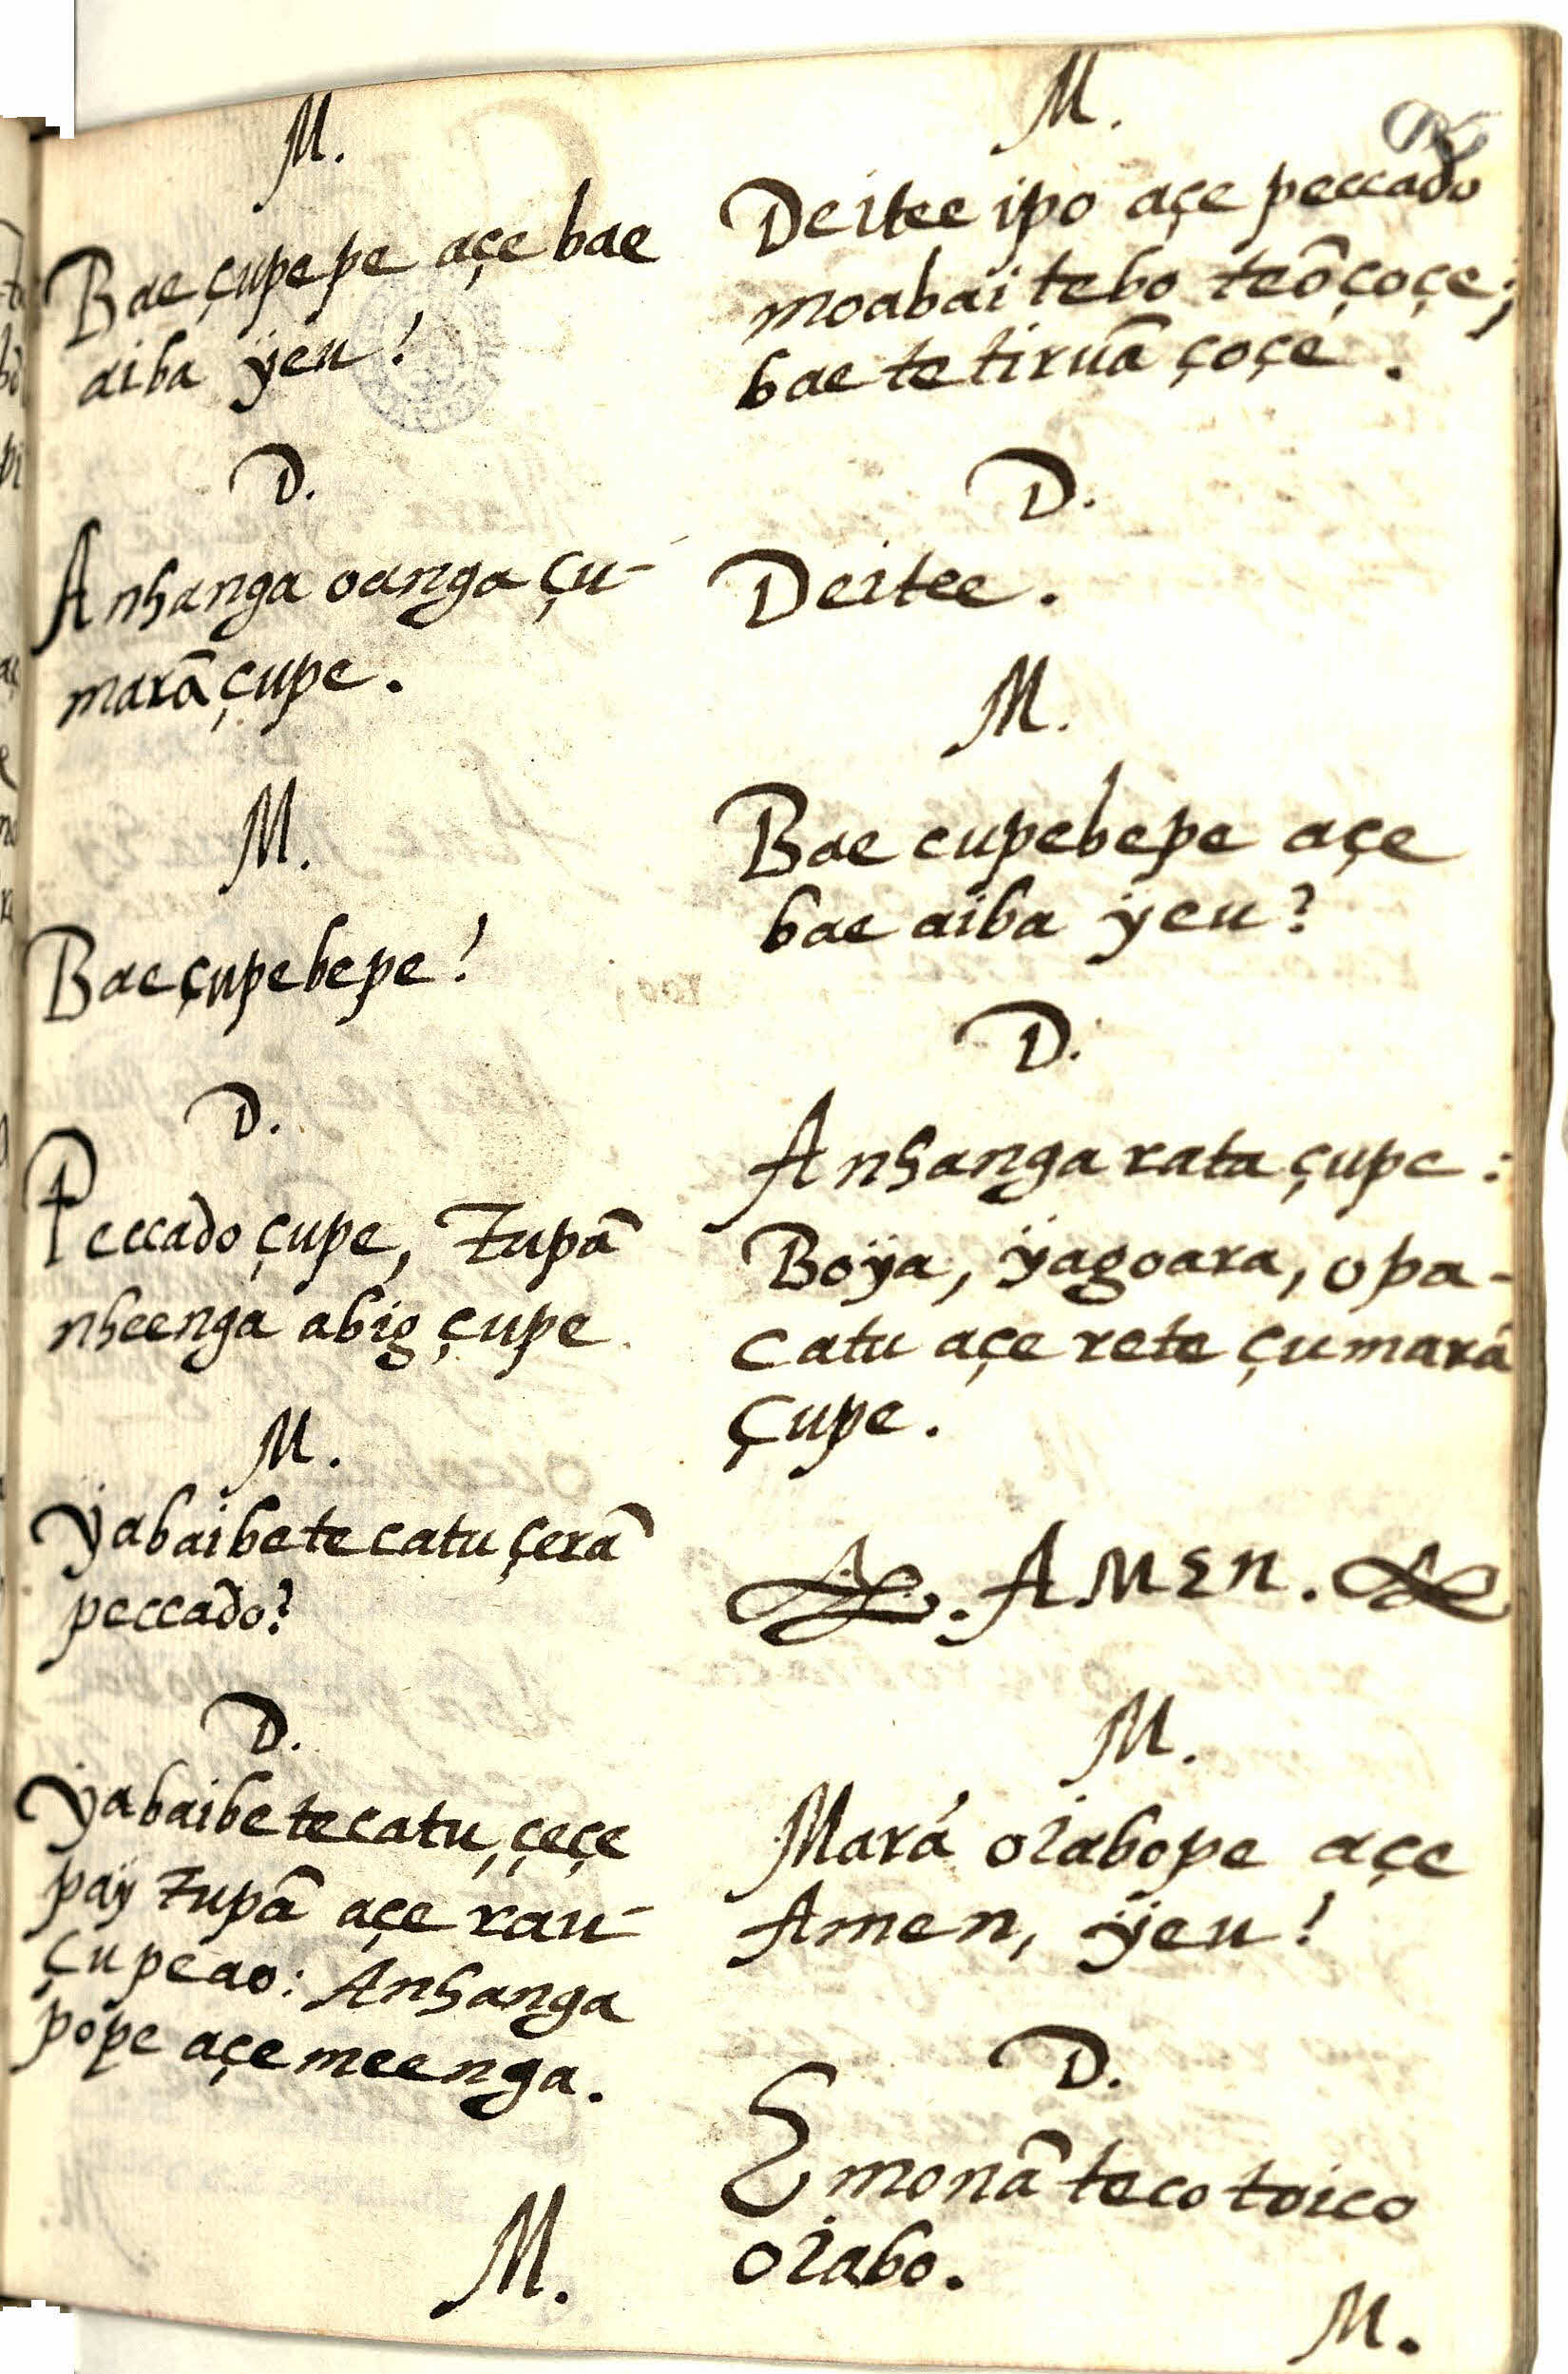 M.
Bae çupepe açe bae
aiba ÿeu?
D.
Anhanga oanga çu-
marã çupe.
M.
Bae çupebepe?
D.
Peccado çupe, Tupã
nheenga abig çupe
M.
Ÿabaibete catu çerã
peccado?
D.
Ÿabaibetecatu, çeçe
paÿ Tupã açe rau-
çupeao: Anhanga
pope açe meenga.
M.
M.
Deitee ipo açe peccado
moabaitebo teõ çoçe;
bae tetiruã çoçe.
D.
Deitee.
M.
Bae cupebepe açe
bae aiba ÿeu?
D.
Anhanga rata çupe:
Boÿa, ÿagoara, opa-
catu açe rete çumarã
çupe.
. AMEN.
M.
Marã oiabope açe
Amen, ÿeu?
D.
Emonã teco toico
oiabo.
M.